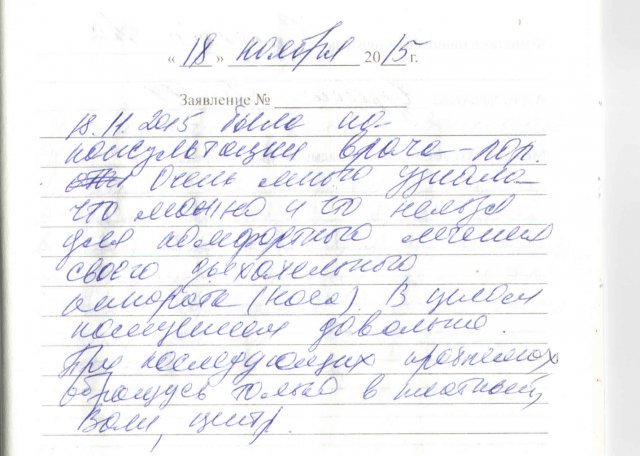 « 18 » ноября 2015 г.
Заявление №
18.11.2015 была на
консультации врача-лор.
Очень много узнала
что можно и что нельзя
для комфортного лечения
своего дыхательного
аппарата (носа). В целом
посещением довольна.
При последующих проблемах
обращусь только в платный,
Ваш, центр.